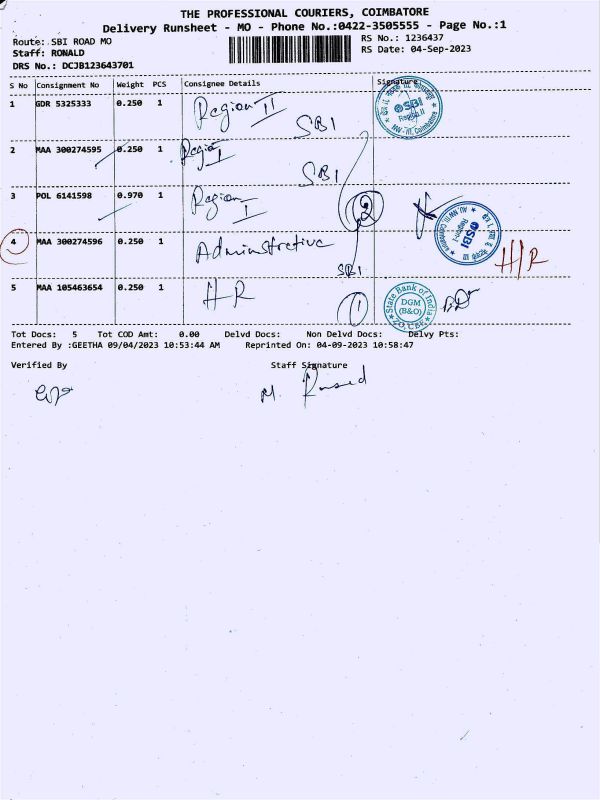 THE PROFESSIONAL COURIERS, COIMBATORE
Delivery Runsheet - MO - Phone No.:0422-3505555 - Page No.:1
Route: SBI ROAD MO
RS No.: 1236437
Staff: RONALD
RS Date: 04-Sep-2023
DRS No.: DCJB123643701
S No Consignment No Weight PCS Consignee Details Signature
1 GDR 5325333 0.250 1 Region II SBI
SBI
Region II
NW-III, Coimbatore
2 MAA 300274595 0.250 1 Region I SBI
3 POL 6141598 0.970 1 Region I 2
SBI
Region-I
4 MAA 300274596 0.250 1 Administrative SBI H/R
5 MAA 105463654 0.250 1 HR 1
State Bank of India
DGM
(B&O)
Tot Docs: 5 Tot COD Amt: 0.00 Delvd Docs: Non Delvd Docs: Delvy Pts:
Entered By :GEETHA 09/04/2023 10:53:44 AM Reprinted On: 04-09-2023 10:58:47
Verified By Staff Signature
M.